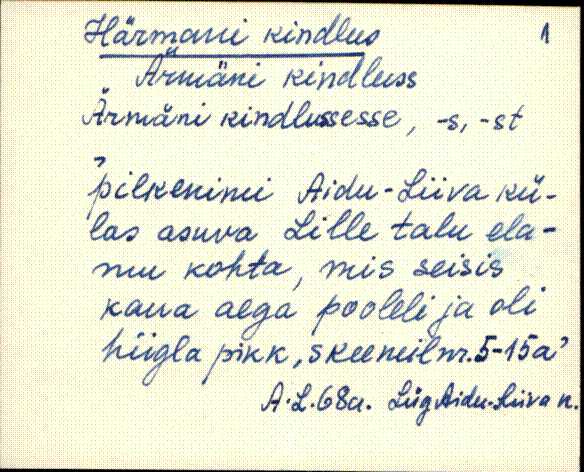 Härmani kindlus 1
Ärmäni kindluss
Ärmäni kindlussesse, -s, -st
'pilkenimi Aidu-Liiva kü-
las asuva Lille talu ela-
mu kohta, mis seisis
kaua aega pooleli ja oli
hiigla pikk, skeemil nr. 5-15a'
A.L. 68a. Lüg Aidu-Liiva n.